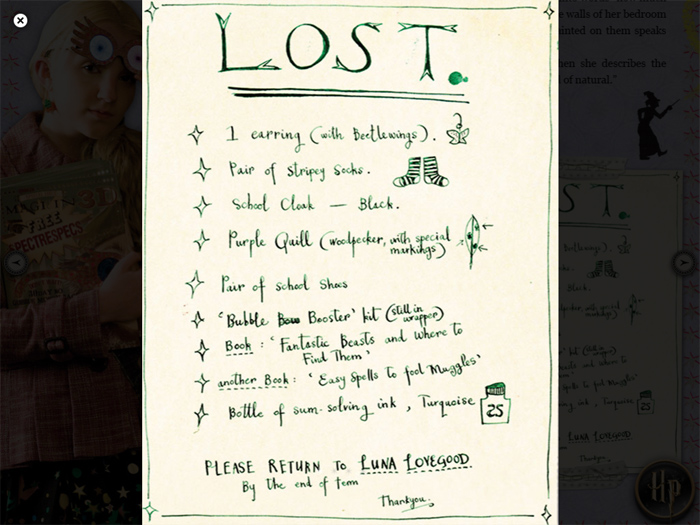 LOST.
1 earring (with Beetlewings).
Pair of Stripey Socks.
School Cloak — Black.
Purple Quill (woodpecker, with special
markings)
Pair of school Shoes
'Bubble Boo Booster' kit (still in
wrapper)
Book : 'Fantastic Beasts and where to
Find Them'
another Book : 'Easy Spells to fool Muggles'
Bottle of sum-solving ink, Turquoise
25
PLEASE RETURN to LUNA LOVEGOOD
By the end of term
Thankyou.
e walls of her bedroom
inted on them speaks
hen she describes the
of natural."
SPECTRESPECS
ST.
LUNA LOVEGOOD
Thankyou.
HP